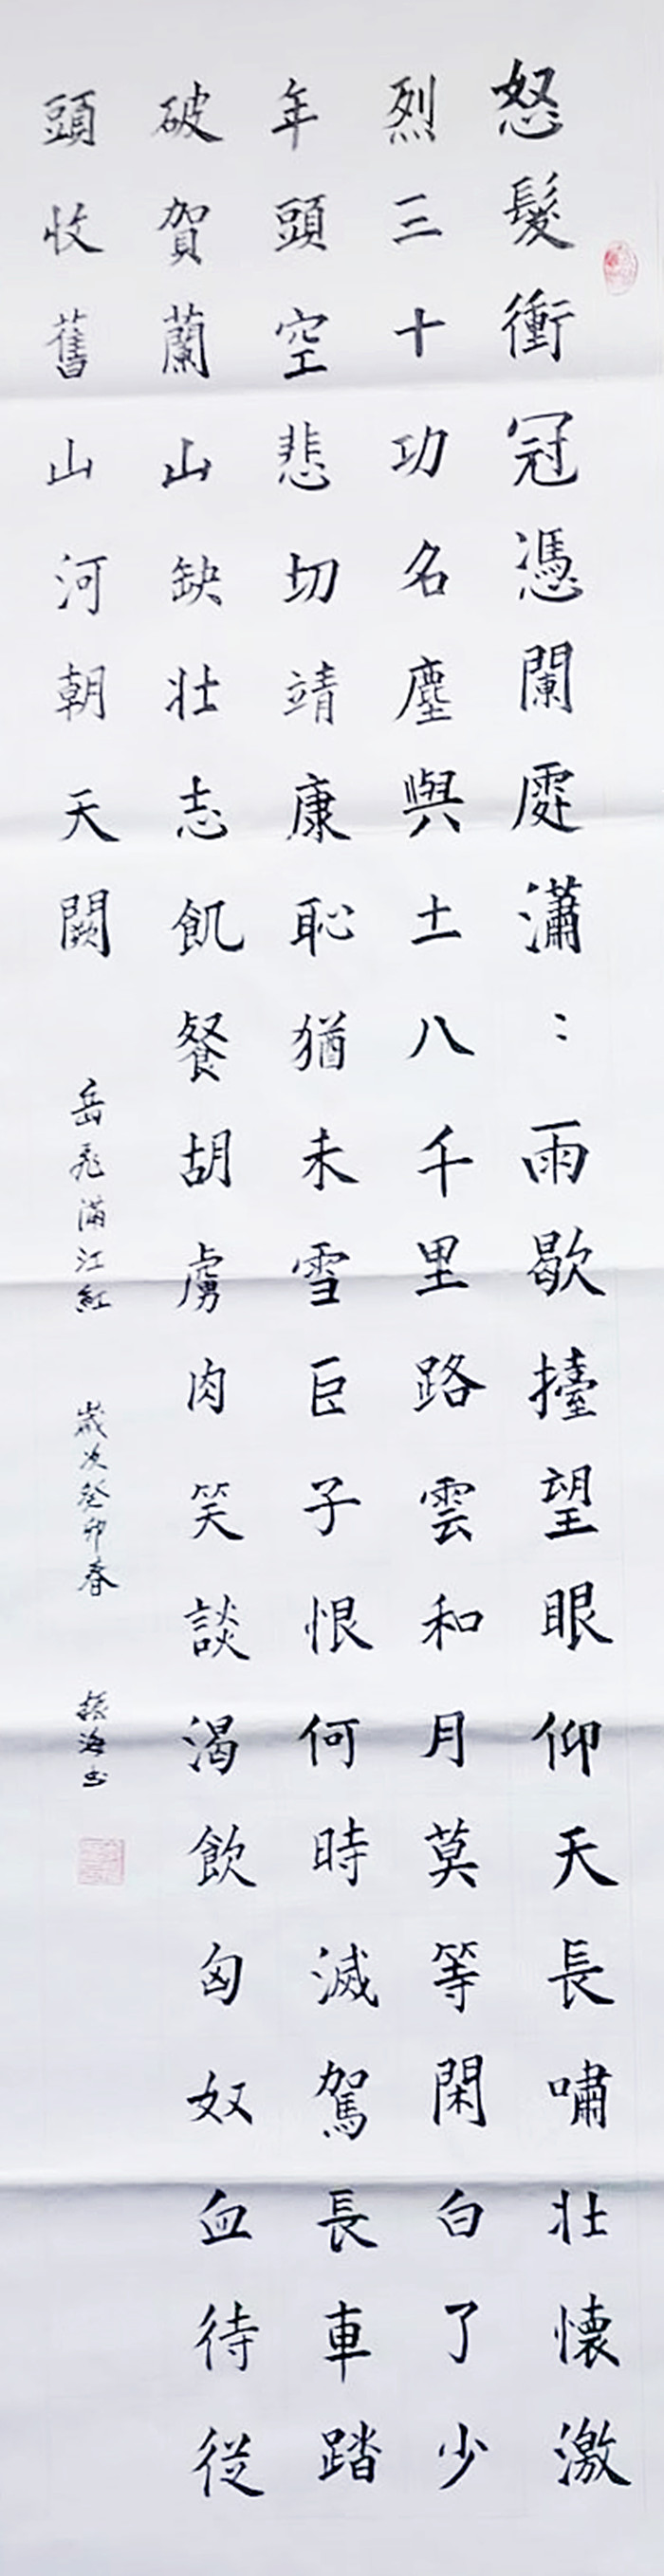 怒髮衝冠憑闌處瀟〻雨歇擡望眼仰天長嘯壯懷激
烈三十功名塵與土八千里路雲和月莫等閑白了少
年頭空悲切靖康恥猶未雪臣子恨何時滅駕長車踏
破賀蘭山缺壯志飢餐胡虜肉笑談渴飲匈奴血待從
頭收舊山河朝天闕
岳飛滿江紅
歲次癸卯春
振海书